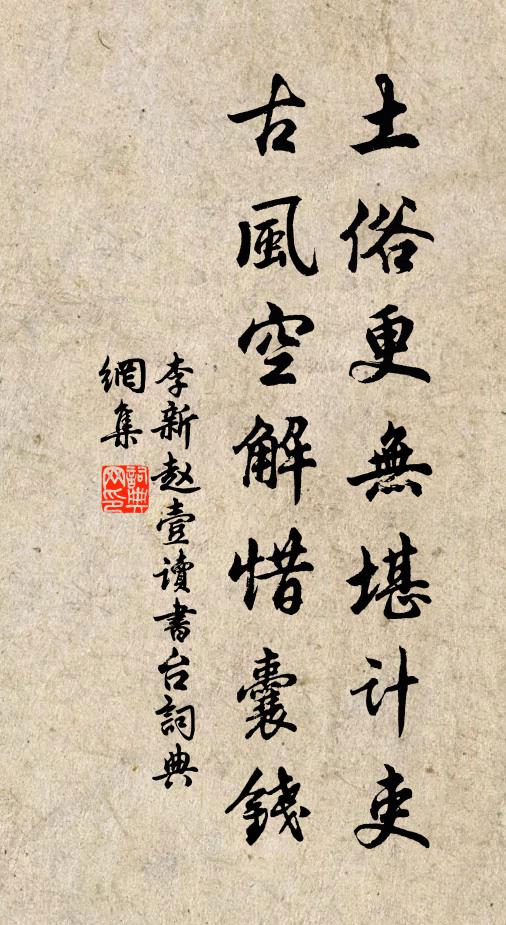 土俗更無堪計吏
古風空解惜囊錢
李新赵壹读书台詞典
網集
詞典网印